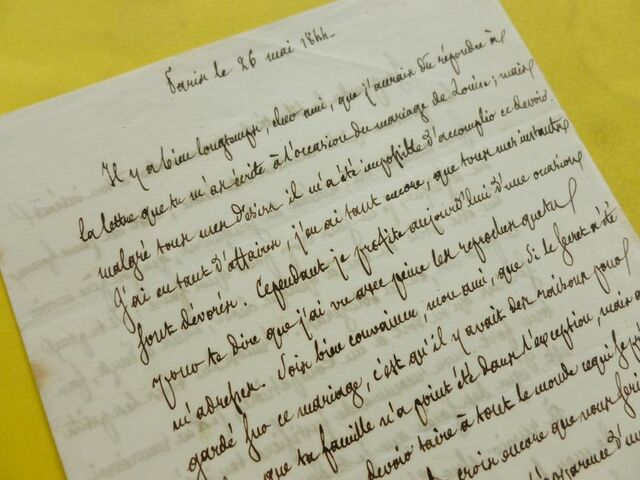 Paris le 26 mai 1844.
Il y a bien longtemps, cher ami, que j'aurais du répondre à
la lettre que tu m'as écrite à l'occasion du mariage de Louise; mais
malgré tous mes désirs il m'a été impossible d'accomplir ce devoir.
J'ai eu tant d'affaires, j'en ai tant encore, que tous mes instants
sont dévorés. Cependant je profite aujourd'hui d'une occasion
pour te dire que j'ai vu avec peine les reproches que tu
m'adresses. Sois bien convaincu, mon ami, que si le secret a été
gardé sur ce mariage, c'est qu'il y avait des raisons pour
que ta famille n'a point été dans l'exception, mais
devoir taire à tout le monde ce qui se
crois encore que nous